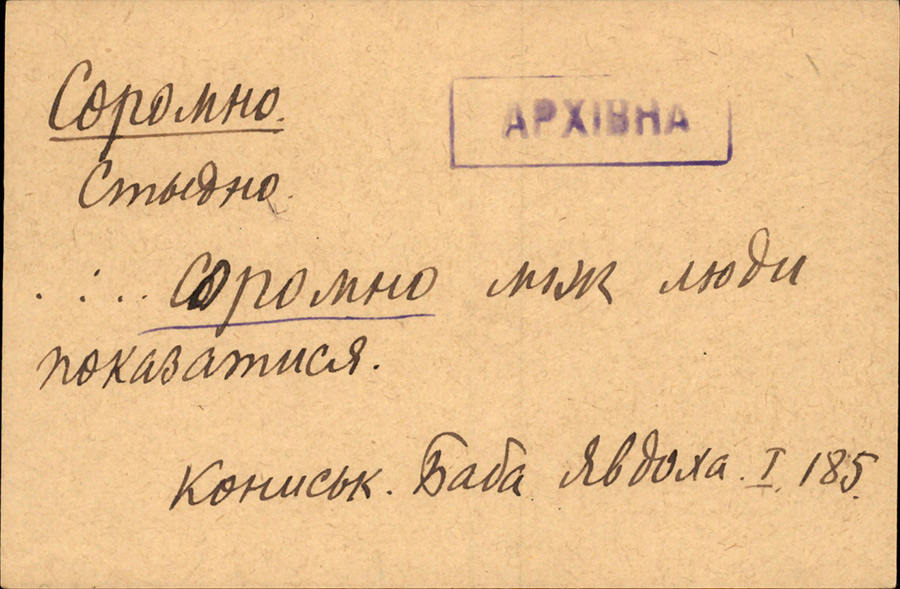 Соромно.
АРХІВНА
Стыдно.
.... Соромно між люди
показатися.
Кониськ. Баба Явдоха. I. 185.